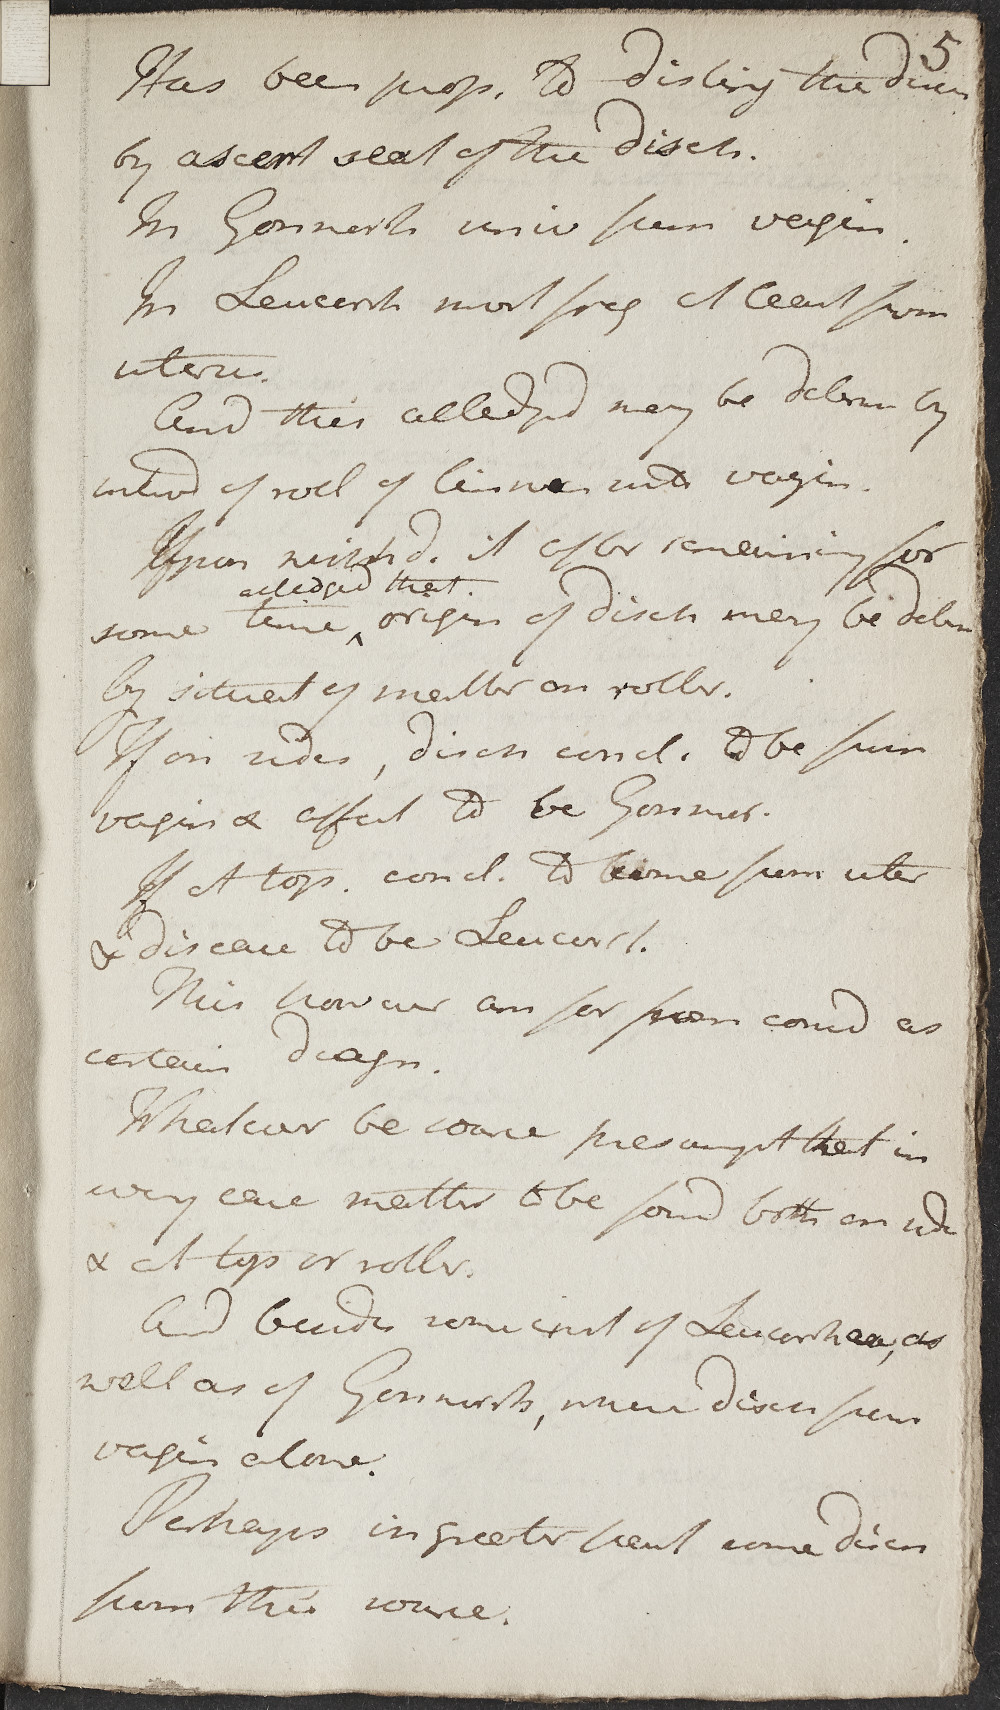 5
Has been prop. to disting the disea
by ascert seat of the disch.
In Gonnorh univ from vagin.
In Leucorrh most freq at least from
uterus.
And this alledged may be determ by
introd of roll of linnen into vagin.
Upon withd. it after remaining for
alledged that
some time, origin of disch may be determ
by situat of matter on roller.
If on sides, disch concl. to be from
vagin & affect to be Gonnor.
If at top. concl. to come from uter
& disease to be Leucorrh.
This however am far from consid as
certain diagn.
Whatever be source presumpt that in
every case matter to be found both on side
& at top of roller.
And besides some inst of Leucorrhœa, as
well as of Gonnorrh, where disch from
vagin alone.
Perhaps in greater part some disch
from this source.